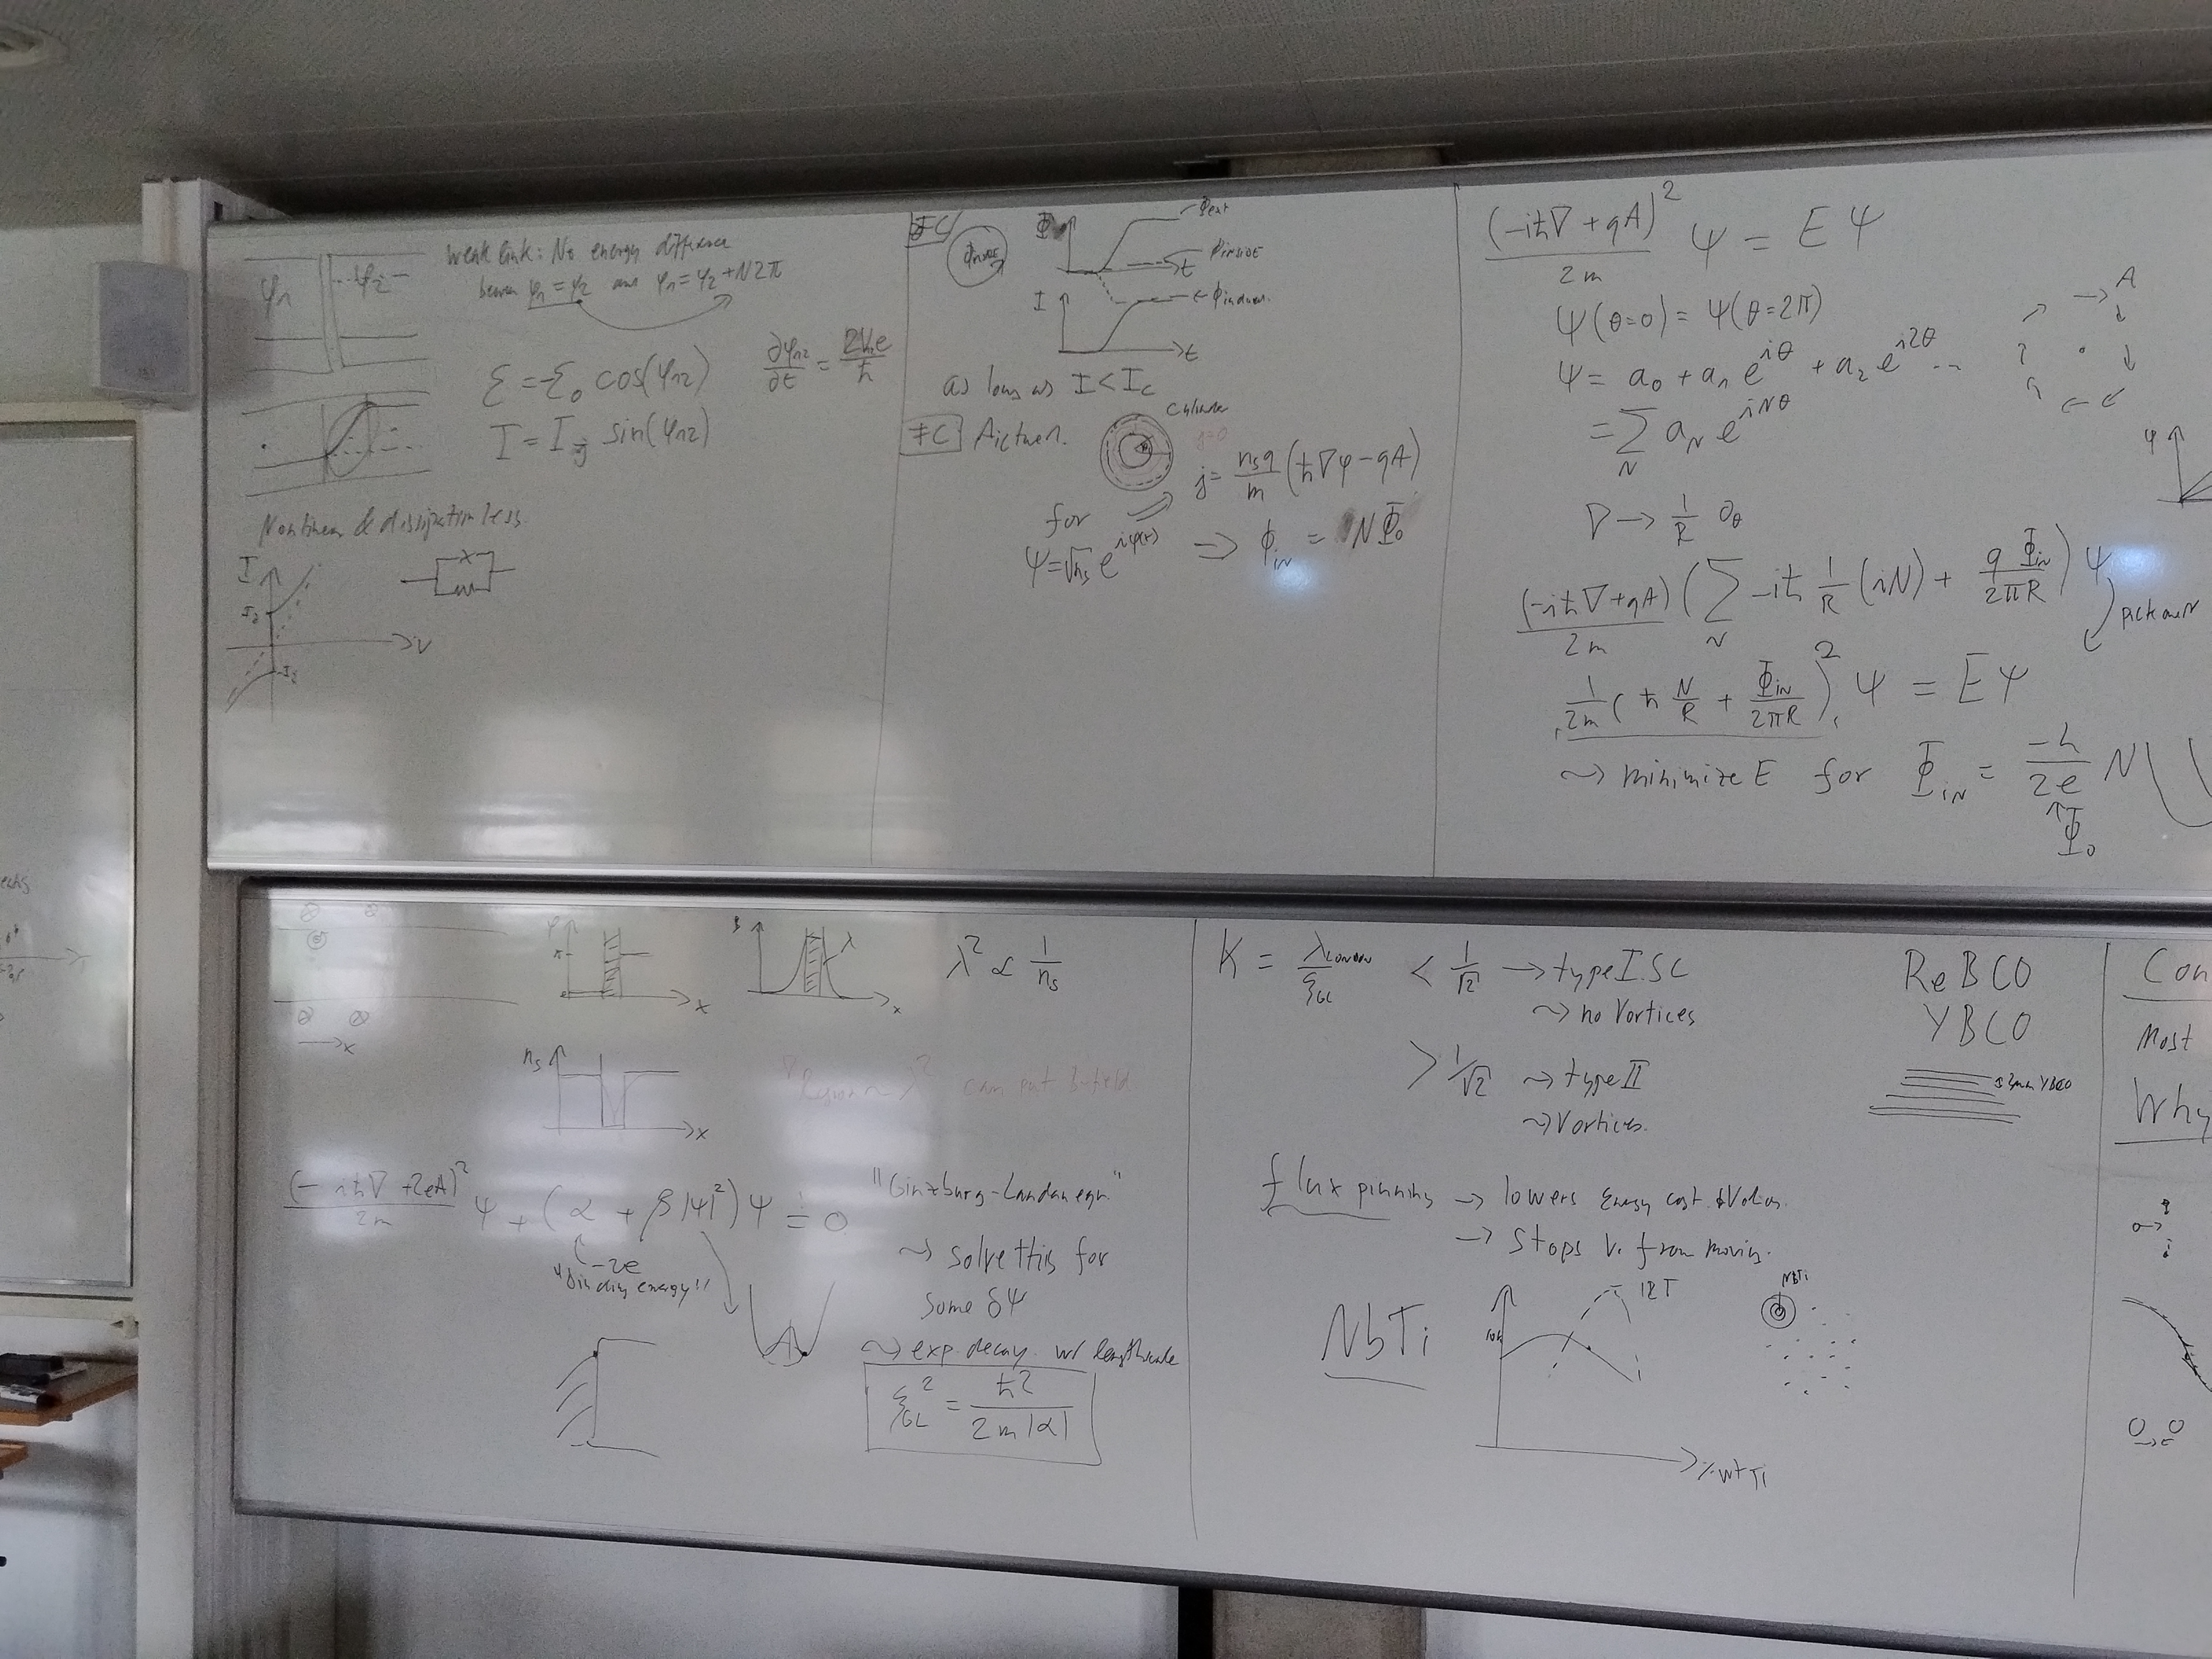 φ₁ φ₂
weak link: No energy difference
φ₁ = φ₂ φ₁ = φ₂ + N2π
Ɛ = -Ɛ₀ cos(φ₁₂)
∂φ₁₂/∂t = 2V₁₂e/ħ
I = I_j sin(φ₁₂)
Nonlinear & dissipationless
I
I_j
V
-I_j
FC
Φinside
Φ
Φext
Φinside
t
I
Φinduced
t
as long as I < I_C
FC Picture
Cylinder
j=0
j = n_s q/m (ħ∇φ - qA)
for
ψ = √n_s e^{iφ(r)} ⇒ Φ_in = NΦ₀
(-iħ∇ + qA)²/2m ψ = Eψ
ψ(θ=0) = ψ(θ=2π)
A
ψ = a₀ + a₁e^{iθ} + a₂e^{i2θ} ...
= Σ_N a_N e^{iNθ}
φ
∇ → 1/R ∂_θ
(-iħ∇+qA)/2m (Σ_N -iħ 1/R (iN) + qΦ_in/2πR) ψ
pick one N
1/2m (ħ N/R + Φ_in/2πR)² ψ = Eψ
~> minimize E for Φ_in = -h/2e N
↑
Φ₀
x
φ
π
x
B
λ
x
λ² ∝ 1/n_s
n_s
x
Region ~ λ² can put B-field
(-iħ∇ + 2eA)²/2m ψ + (α + β|ψ|²)ψ = 0
-2e
"binding energy"
"Ginzburg-Landau eqn."
~> solve this for
some δψ
~> exp. decay w/ lengthscale
ξ²_GL = ħ²/2m|α|
K = λ_London/ξ_GL < 1/√2 → type I SC
~> no Vortices
> 1/√2 ~> type II
~> Vortices.
ReBCO
YBCO
YBCO
flux pinning → lowers Energy cost
→ stops V. from moving.
NbTi
12T
10K
%wt Ti
NbTi
Con
Most
Why